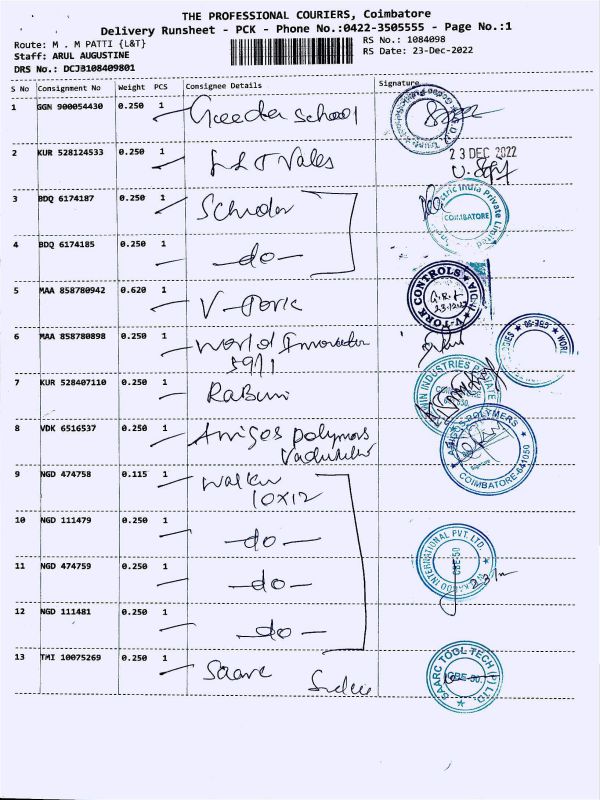 THE PROFESSIONAL COURIERS, Coimbatore
Delivery Runsheet - PCK - Phone No.:0422-3505555 - Page No.:1
Route: M . M PATTI {L&T}
RS No.: 1084098
Staff: ARUL AUGUSTINE
RS Date: 23-Dec-2022
DRS No.: DCJB108409801
S No Consignment No Weight PCS Consignee Details Signature
1 GGN 900054430 0.250 1 School
2 KUR 528124533 0.250 1 L&T Valves
23 DEC 2022
3 BDQ 6174187 0.250 1
Electric India Private Limited
COIMBATORE
4 BDQ 6174185 0.250 1 -do-
5 MAA 858780942 0.620 1 V-Tork
V-TORK CONTROLS
23.12.22
6 MAA 858780898 0.250 1 World
CBE-50
7 KUR 528407110 0.250 1
INDUSTRIES PRIVATE
8 VDK 6516537 0.250 1 Amigos polymers
AMIGOS POLYMERS
COIMBATORE-641050
9 NGD 474758 0.115 1
10x12
10 NGD 111479 0.250 1 -do-
INTERNATIONAL PVT. LTD.
CBE-50
11 NGD 474759 0.250 1 -do-
12 NGD 111481 0.250 1 -do-
13 TMI 10075269 0.250 1 Saarc
SAARC TOOL TECH (P) LTD.
CBE-50.